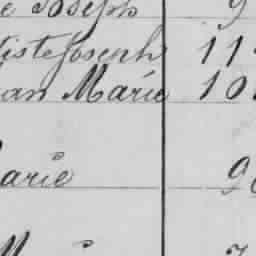 e Joseph 9
tiste Joseph 11
an Marie 10
arie 9